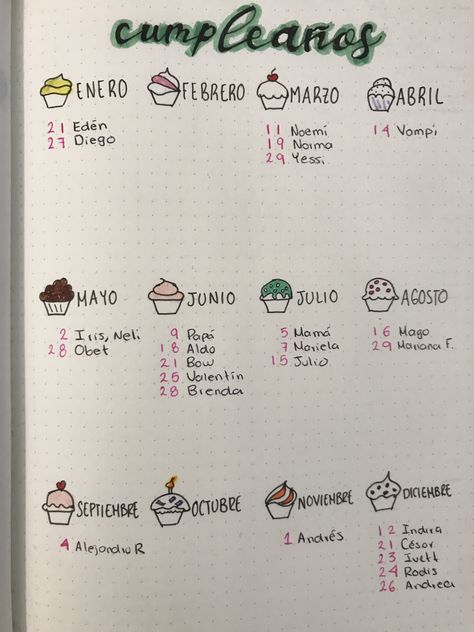 cumpleaños
ENERO
21 Edén
27 Diego
FEBRERO
MARZO
11 Noemí
19 Norma
29 Yessi
ABRIL
14 Vampi
MAYO
2 Iris, Neli
28 Obet
JUNIO
9 Papá
18 Aldo
21 Bow
25 Valentín
28 Brenda
JULIO
5 Mamá
7 Mariela
15 Julio
AGOSTO
16 Mago
29 Mariana F.
SEPTIEMBRE
4 Alejandro R
OCTUBRE
NOVIEMBRE
1 Andrés
DICIEMBRE
12 Indira
21 César
23 Ivett
24 Rodis
26 Andrea